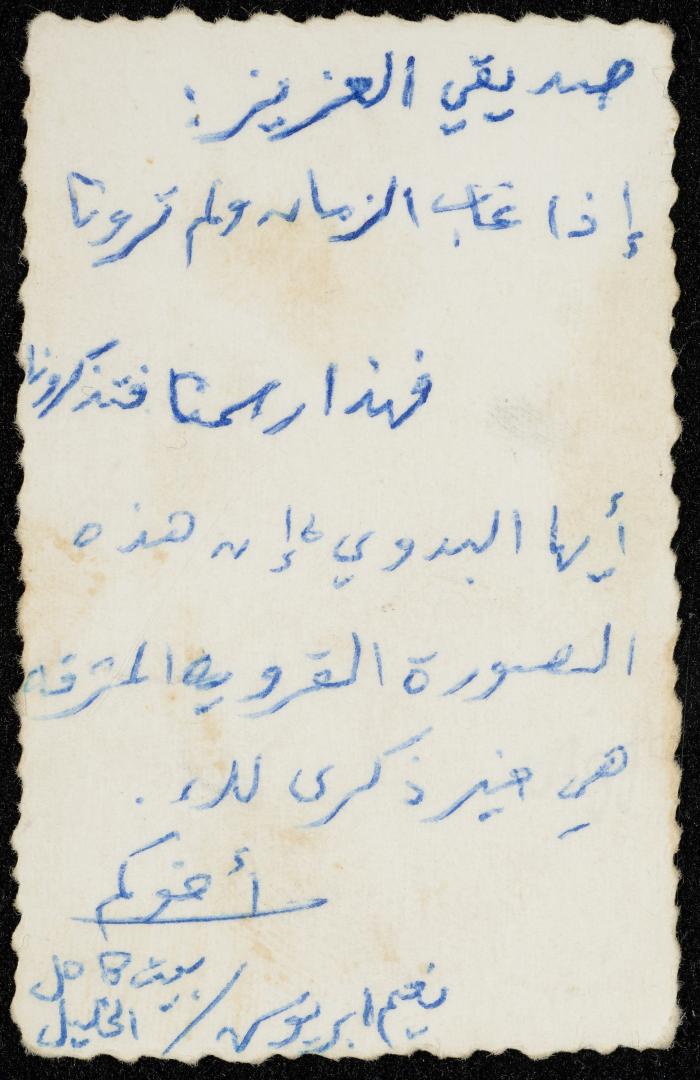 صديقي العزيز:
إذا غاب الزمان ولم ترونا
فهذا رسمنا فتذكرونا
أيها البدوي، إن هذه
الصورة القروية المترفه
هي خير ذكرى لك.
أخوكم
نعيم ابريوش / بيت كاحل
الخليل